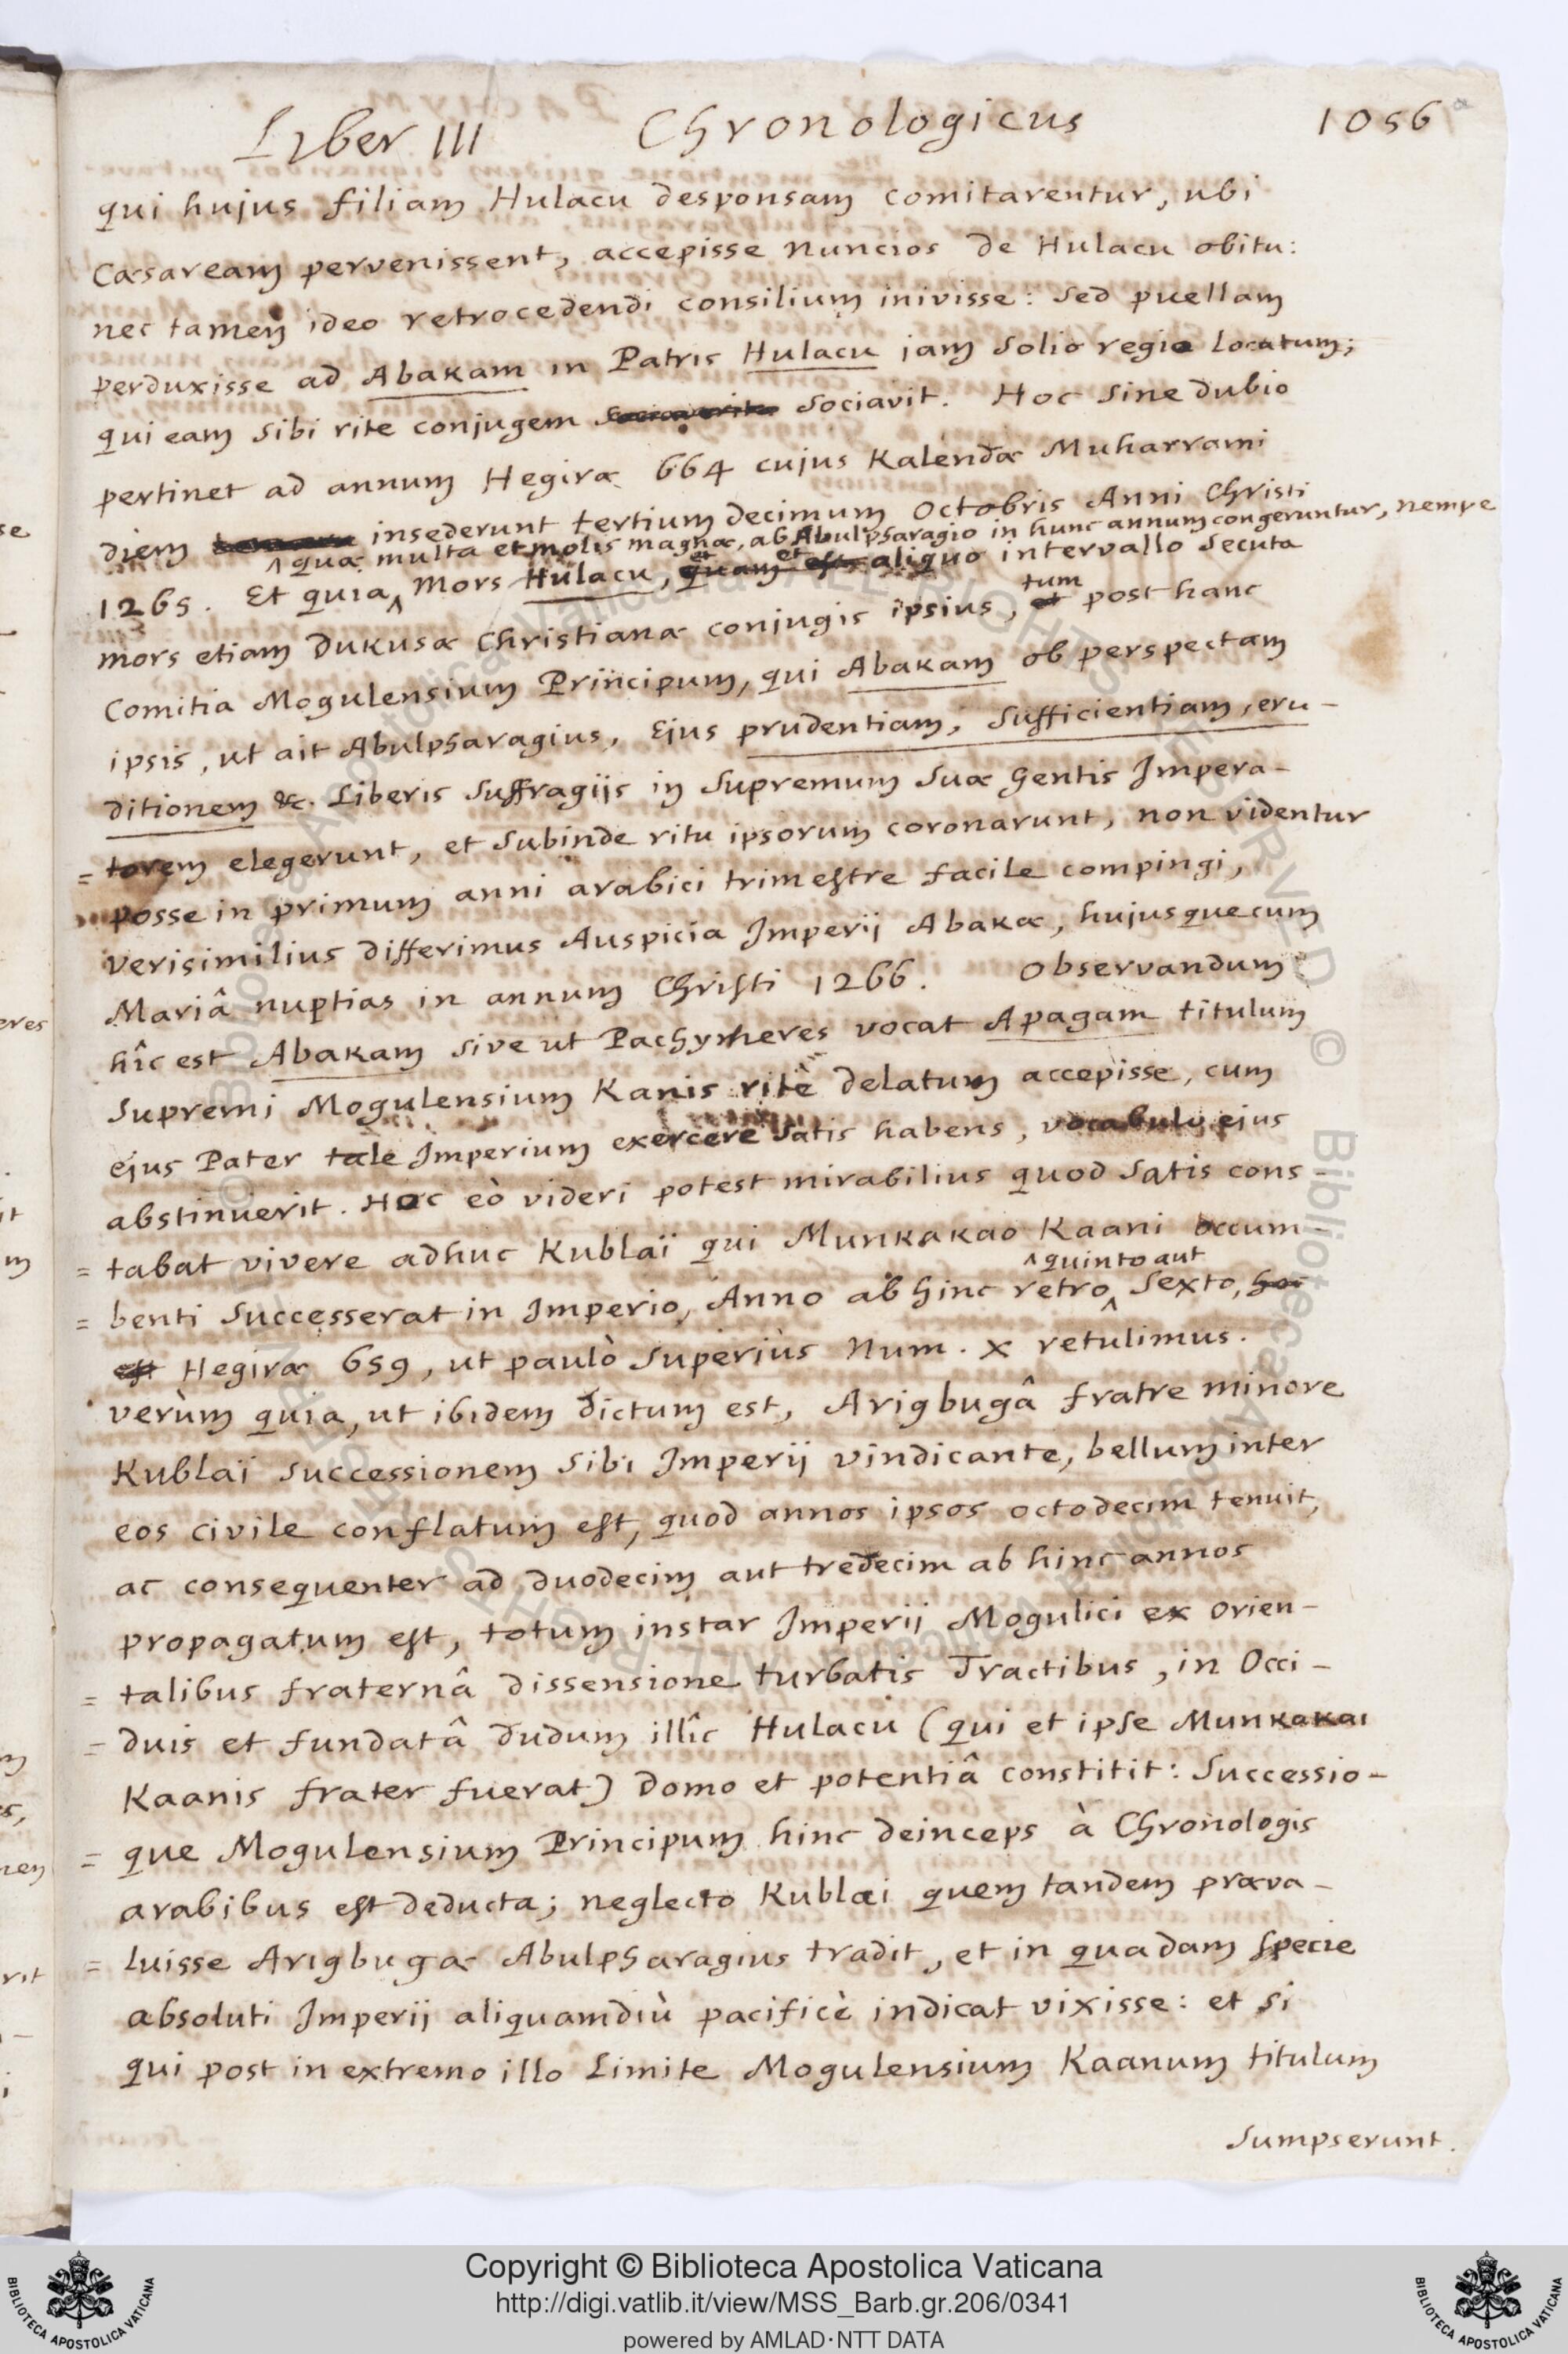 Liber III Chronologicus 1056
qui hujus filiam Hulacu desponsam comitarentur, ubi
Cæsaream pervenissent, accepisse nuncios de Hulacu obitu:
nec tamen ideo retrocedendi consilium inivisse: sed puellam
perduxisse ad Abakam in Patris Hulacu jam solio regio locatum;
qui eam sibi rite conjugem sociavit. Hoc sine dubio
pertinet ad annum Hegiræ 664 cujus Kalendæ Muharrami
diem insederunt tertium decimum Octobris Anni Christi
quæ multa et molis magnæ, ab Abulpharagio in hunc annum congeruntur, nempe
1265. Et quia mors Hulacu, quam et est aliquo intervallo secuta
et
tum
mors etiam Dukusæ Christianæ conjugis ipsius, et post hanc
Comitia Mogulensium Principum, qui Abakam ob perspectam
ipsis, ut ait Abulpharagius, Ejus prudentiam, sufficientiam, eru-
ditionem &c. Liberis suffragijs in supremum suæ Gentis Impera-
= torem elegerunt, et subinde ritu ipsorum coronarunt, non videntur
posse in primum anni arabici trimestre facile compingi,
verisimilius differimus Auspicia Imperij Abakæ, hujusque cum
Mariâ nuptias in annum Christi 1266. Observandum
hîc est Abakam sive ut Pachymeres vocat Apagam titulum
supremi Mogulensium Kanis ritè delatum accepisse, cum
ejus Pater tale Imperium exercere satis habens, vocabulo ejus
abstinuerit. Hoc eò videri potest mirabilius quod satis cons-
= tabat vivere adhuc Kublaï qui Munkakao Kaani occum-
quinto aut
= benti successerat in Imperio, Anno ab hinc retro sexto, hoc
est Hegiræ 659, ut paulò superiùs Num. x retulimus.
verùm quia, ut ibidem dictum est, Arigbugâ fratre minore
Kublaï successionem sibi Imperij vindicante, bellum inter
eos civile conflatum est, quod annos ipsos octodecim tenuit,
ac consequenter ad duodecim aut tredecim ab hinc annos
propagatum est, totum instar Imperij Mogulici ex Orien-
= talibus fraternâ dissensione turbatis Tractibus, in Occi-
= duis et fundatâ dudum illîc Hulacu (qui et ipse Munkakai
Kaanis frater fuerat) domo et potentiâ constitit: Successio-
= que Mogulensium Principum hinc deinceps à Chronologis
arabibus est deducta; neglecto Kublai quem tandem præva-
= luisse Arigbugæ Abulpharagius tradit, et in quadam specie
absoluti Imperij aliquamdiù pacificè indicat vixisse: et si
qui post in extremo illo Limite Mogulensium Kaanum titulum
sumpserunt.
Copyright © Biblioteca Apostolica Vaticana
http://digi.vatlib.it/view/MSS_Barb.gr.206/0341
powered by AMLAD·NTT DATA
BIBLIOTECA APOSTOLICA VATICANA
BIBLIOTECA APOSTOLICA VATICANA